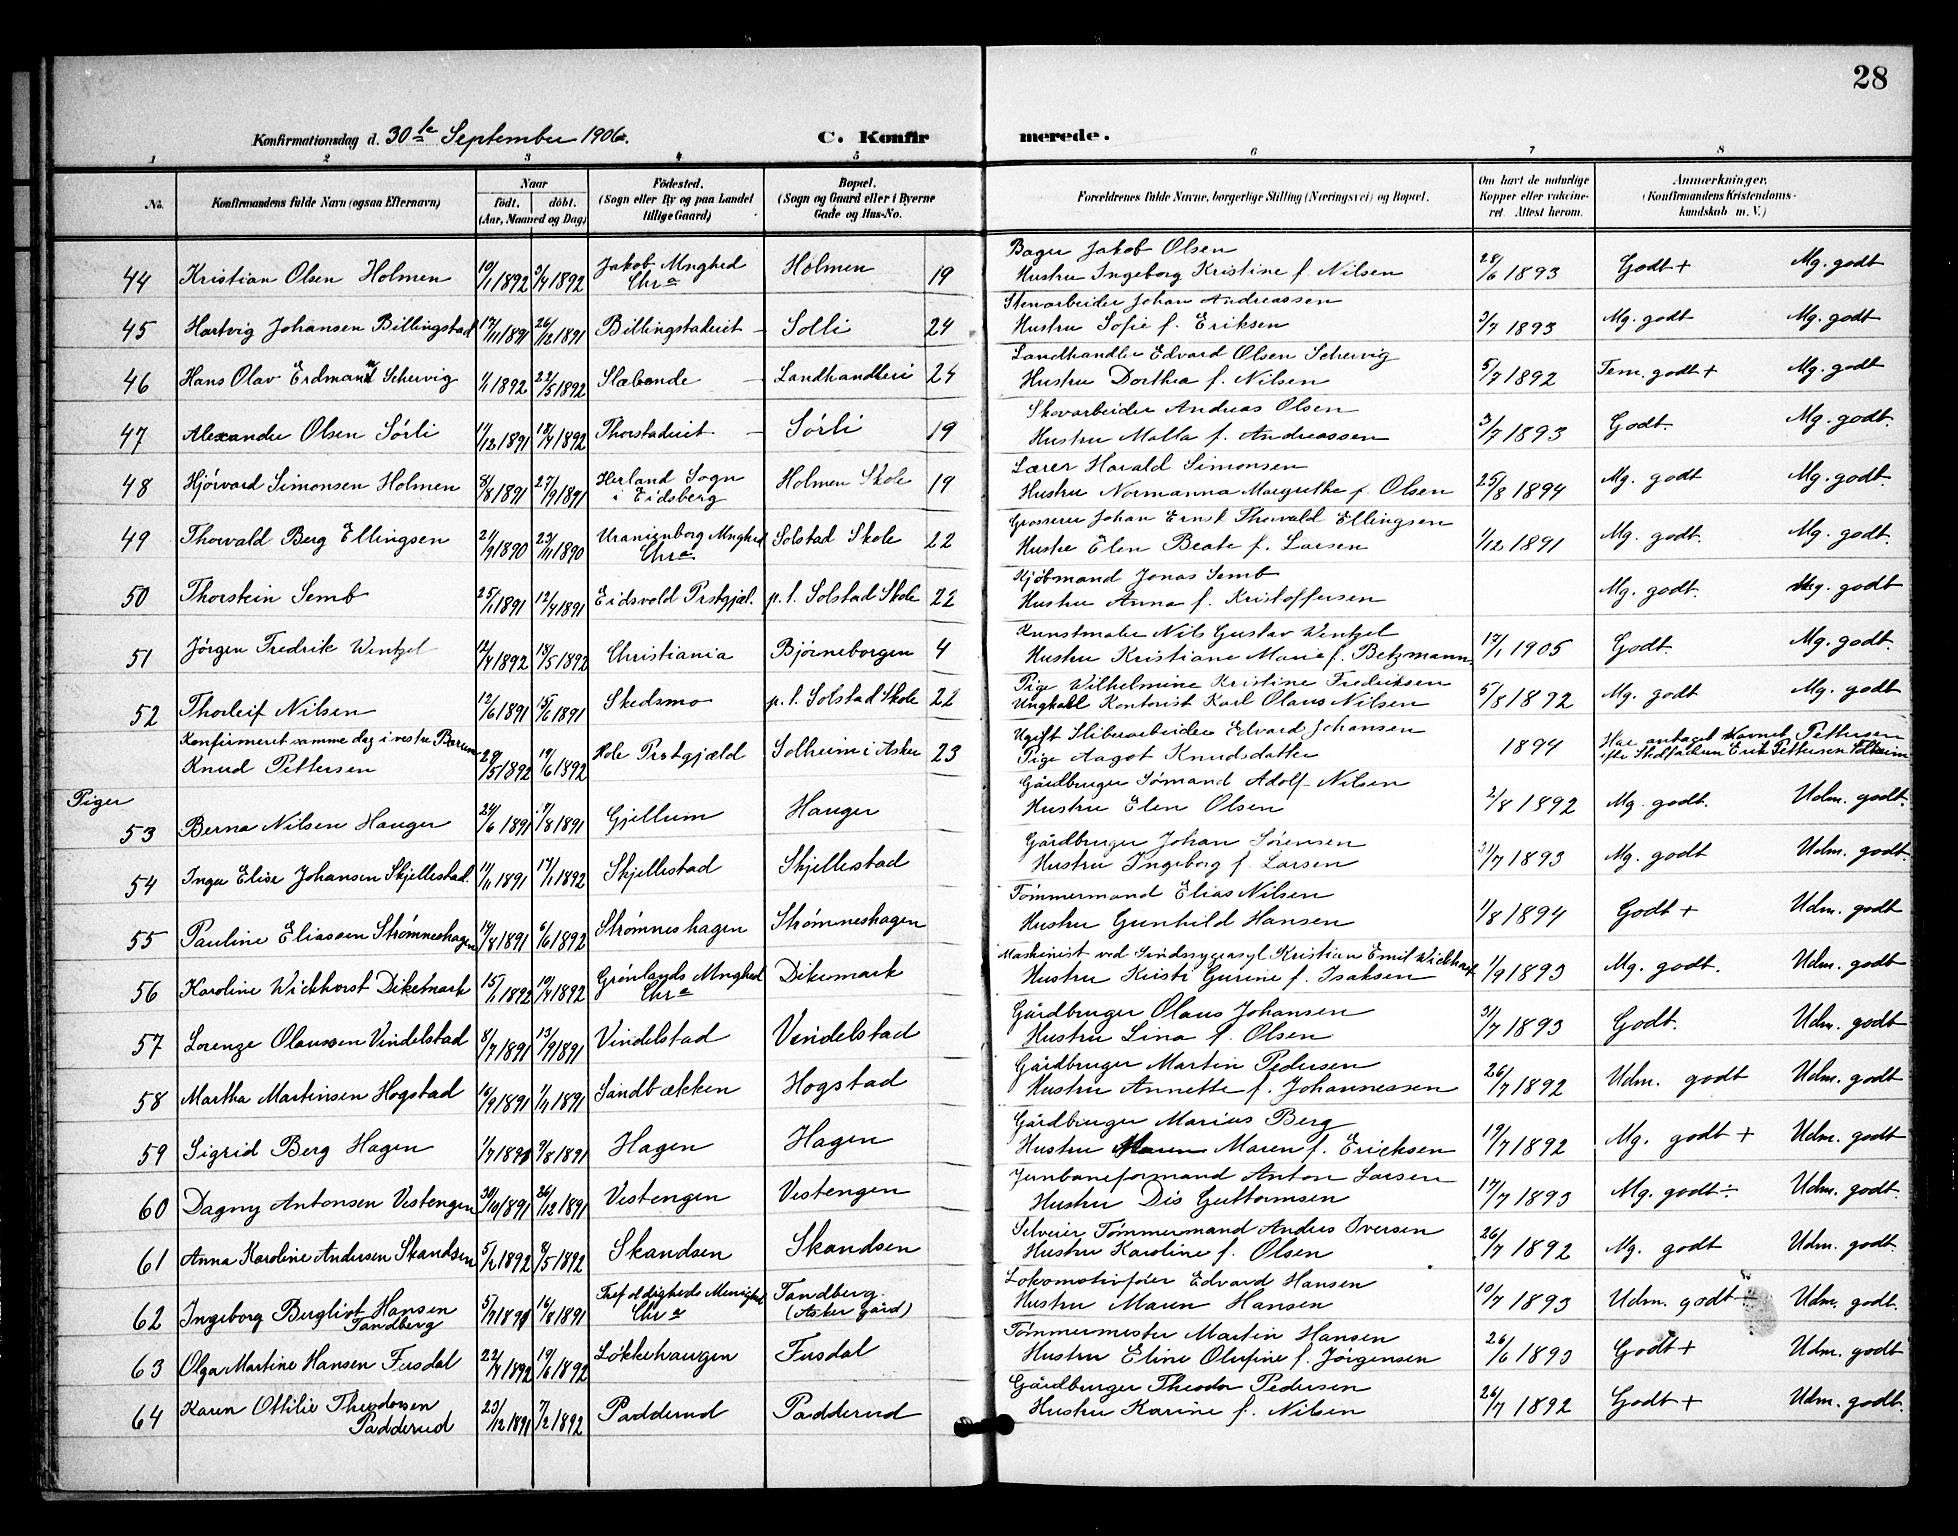 28
Konfirmationsdag d. 30te September 1906. C. Konfirmerede.
1 2 3 4 5 6 7 8
No. Konfirmandens fulde Navn (ogsaa Efternavn) Naar født. døbt. (Aar, Maaned og Dag) Fødested. (Sogn eller By og paa Landet tillige Gaard) Bopæl. (Sogn og Gaard eller i Byerne Gade og Hus-No. Forældrenes fulde Navne, borgerlige Stilling (Næringsvei) og Bopæl. Om havt de naturlige Kopper eller vakcineret Attest herom. Anmærkninger. (Konfirmandens Kristendomskundskab m. V.)
44 Kristian Olsen Holmen 10/1 1892 3/4 1892 Jakob Mnghed Chra Holmen 19 Bager Jakob Olsen Hustru Ingeborg Kristine f. Nilsen 28/6 1893 Godt + Mg. godt
45 Hartvig Johansen Billingstad 17/11 1891 26/12 1891 Billingstadeiet – Solli 24 Stenarbeider Johan Andreassen Hustru Sofie f. Eriksen 3/7 1893 Mg. godt Mg. godt
46 Hans Olav Erdmann Schervig 1/1 1892 22/5 1892 Slæbende – Landhandleri 24 Landhandler Edvard Olsen Schervig Hustru Dorthea f. Nilsen 5/7 1892 Tem. godt + Mg. godt
47 Alexander Olsen Sørli 11/12 1891 18/4 1892 Thorstadeiet – Sørli 19 Skovarbeider Andreas Olsen Hustru Malla f. Andreassen 3/7 1893 Godt. Mg. godt.
48 Hjørvard Simonsen Holmen 8/8 1891 27/9 1891 Herland Sogn i Eidsberg Holmen Skole 19 Lærer Harald Simonsen Hustru Normanna Margrethe f. Olsen 25/8 1894 Mg. godt Mg. godt.
49 Thorvald Berg Ellingsen 21/9 1890 23/11 1890 Uranienborg Mnghed Chra Solstad Skole 22 Grosserer Johan Ernst Thorvald Ellingsen Hustru Elen Beate f. Larsen 1/12 1891 Mg. godt. Mg. godt.
50 Thorstein Semb 25/1 1891 12/4 1891 Eidsvold Prstgjæl. p. t. Solstad Skole 22 Kjøbmand Jonas Semb Hustru Anna f. Kristoffersen Mg. godt. Mg. godt
51 Jørgen Fredrik Wentzel 12/4 1892 18/5 1892 Christiania Bjørneborgen 4 Kunstmaler Nils Gustav Wentzel Hustru Kristiane Marie f. Betzmann 17/1 1905 Godt. Mg. godt.
52 Thorleif Nilsen 12/6 1891 15/6 1891 Skedsmo p. t. Solstad Skole 22 Pige Wilhelmine Kristine Fredriksen Ungkarl Kontorist Karl Olaus Nilsen 5/8 1892 Mg. godt Mg. godt
Konfirmeret samme dag i vestre Bærum
Knud Pettersen 29/5 1892 19/6 1892 Hole Prstgjæld Solheim i Asker 23 Ugift Sliberarbeider Edvard Johansen Pige Aagot Knudsdatter 1894 Har antaget Navnet Pettersen efter Stedfaderen Erik Pettersen Solheim
Piger
53 Berna Nilsen Hauger 24/6 1891 17/8 1891 Gjellum Hauger Gårdbruger Sømand Adolf Nilsen Hustru Elen Olsen 2/8 1892 Mg. godt. Udm. godt.
54 Inga Elise Johansen Skjellestad. 11/11 1891 17/1 1892 Skjellestad Skjellestad Gårdbruger Johan Sørensen Hustru Ingeborg f. Larsen 31/7 1893 Mg. godt Udm. godt.
55 Pauline Eliassen Strømneshagen 14/8 1891 6/6 1892 Strømneshagen Strømneshagen Tømmermand Elias Nilsen Hustru Gunhild Hansen 1/8 1894 Godt + Udm. godt
56 Karoline Wickhorst Dikemark 15/1 1892 10/4 1892 Grønlands Mnghed Chra Dikemark Maskinist ved Sindssygeasyl Kristian Emil Wickhorst Hustru Kristi Gurine f. Isaksen 1/9 1893 Mg. godt. Udm. godt.
57 Lorenze Olaussen Vindelstad 8/7 1891 13/9 1891 Vindelstad Vendelstad Gårdbruger Olaus Johansen Hustru Lina f. Olsen 31/7 1893 Godt. Udm. godt
58 Martha Martinsen Hogstad 16/9 1891 1/11 1891 Sandbækken Hogstad Gårdbruger Martin Pedersen Hustru Annette f. Johannessen 26/7 1892 Udm. godt Udm. godt
59 Sigrid Berg Hagen 1/7 1891 9/8 1891 Hagen Hagen Gårdbruger Marius Berg Hustru Maren Maren f. Ericksen 19/7 1892 Mg. godt + Udm. godt
60 Dagny Antonsen Vestengen 30/10 1891 26/12 1891 Vestengen Vestengen Jernbaneformand Anton Larsen Hustru Dis Guttormsen 17/7 1893 Mg. godt ÷ Udm. godt
61 Anna Karoline Andersen Skandsen 5/2 1892 8/5 1892 Skandsen Skandsen Selveier Tømmermand Anders Iversen Hustru Karoline f. Olsen 26/7 1892 Mg. godt Udm. godt
62 Ingeborg Bergliot Hansen Tandberg 5/7 1891 16/8 1891 Trefoldigheds Menighed Chra Tandberg. (Asker gård) Lokomotivfører Edvard Hansen Hustru Maren Hansen 10/7 1893 Udm. godt Udm. godt.
63 Olga Martine Hansen Fusdal 22/4 1892 19/6 1892 Løkkehaugen Fusdal Tømmermester Martin Hansen Hustru Eline Olufine f. Jørgensen 26/6 1893 Godt + Udm. godt
64 Karen Ottilie Theodorsen Padderud 23/12 1891 7/2 1892 Padderud Padderud Gårdbruger Theodor Pedersen Hustru Karine f. Nilsen 26/7 1892 Godt + Udm. godt.